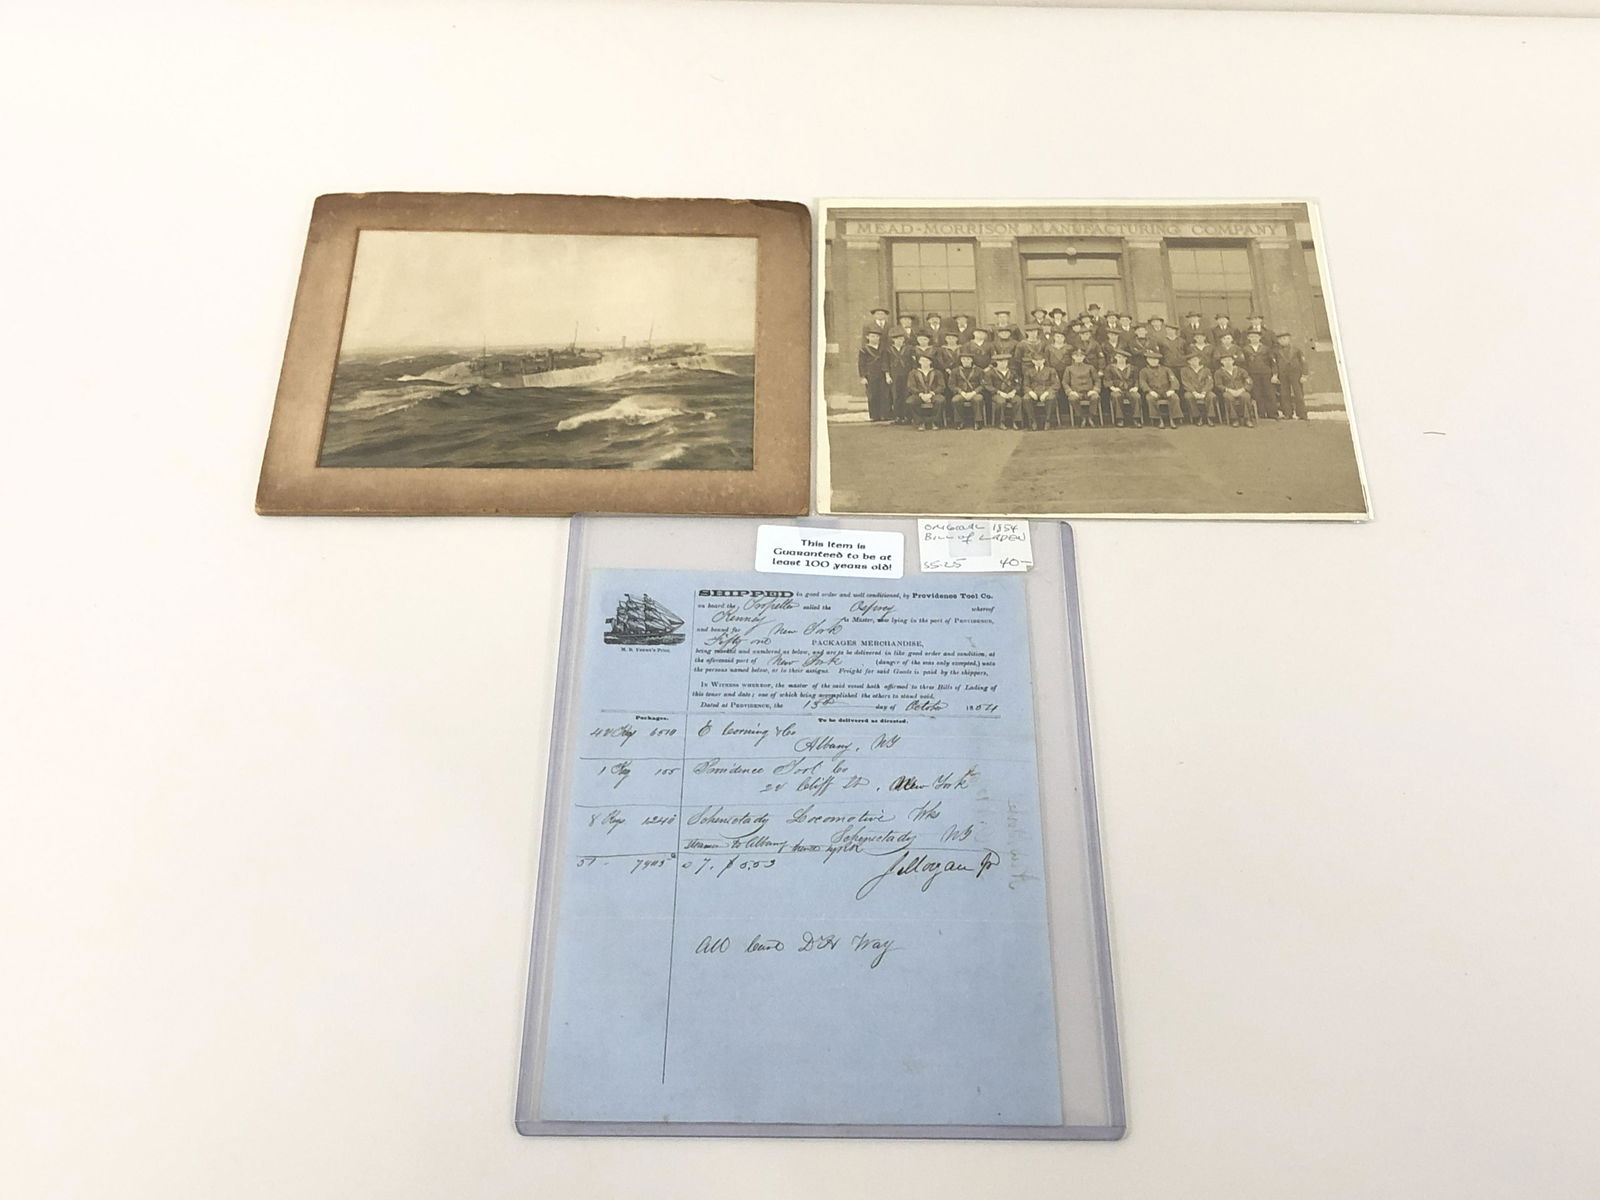 MEAD-MORRISON MANUFACTURING COMPANY
This Item is
Guaranteed to be at
least 100 years old!
ORIGINAL 1854
BILL of LADEN
55-25 40-
SHIPPED in good order and well conditioned, by Providence Tool Co.
on board the Propeller called the Osprey whereof
Kenney As Master, now lying in the port of PROVIDENCE,
and bound for New York
Fifty one PACKAGES MERCHANDISE,
being marked and numbered as below, and are to be delivered in like good order and condition, at
the aforesaid port of New York (danger of the seas only excepted,) unto
the persons named below, or to their assigns. Freight for said Goods is paid by the shippers,
IN WITNESS WHEREOF, the master of the said vessel hath affirmed to three Bills of Lading of
this tenor and date; one of which being accomplished the others to stand void.
Dated at PROVIDENCE, the 13th day of October 1854
Packages. To be delivered as directed.
E Corning & Co
Albany, NY
1 Keg 155 Providence Tool Co
Cliff St, New York
8 Kegs 1240 Schenectady Locomotive Wks
Schenectady NY
Steamer to Albany
51
J Morgan Jr
All Care D H Way